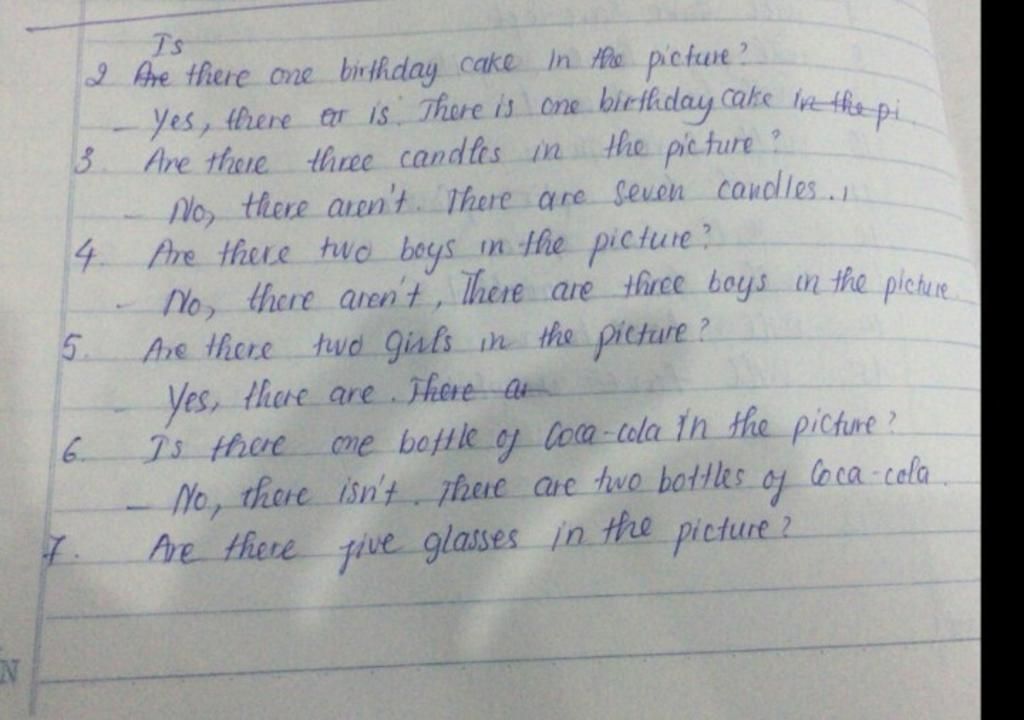 Is
2 Are there one birthday cake in the picture?
- Yes, there er is. There is one birthday cake in the pi
3. Are there three candles in the picture?
- No, there aren't. There are seven candles.
4. Are there two boys in the picture?
- No, there aren't, There are three boys in the picture
5. Are there two girls in the picture?
- Yes, there are. There a
6. Is there one bottle of Coca-cola in the picture?
- No, there isn't. There are two bottles of Coca-cola.
7. Are there five glasses in the picture?
N